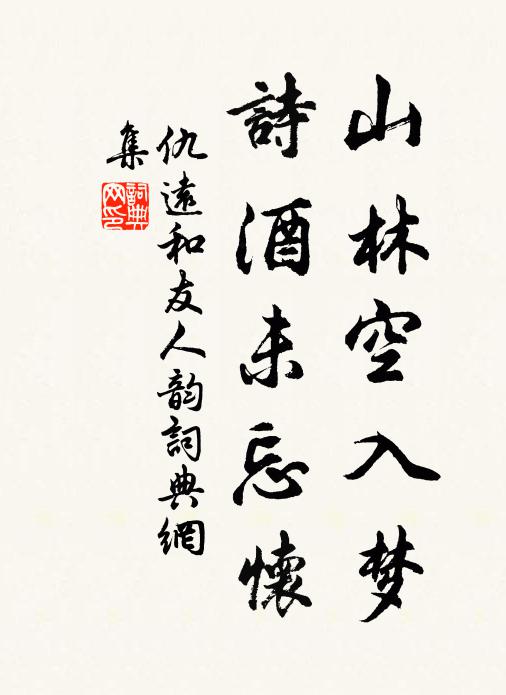 山林空入梦
詩酒未忘懷
仇遠和友人韵詞典網
集
詞典
网印